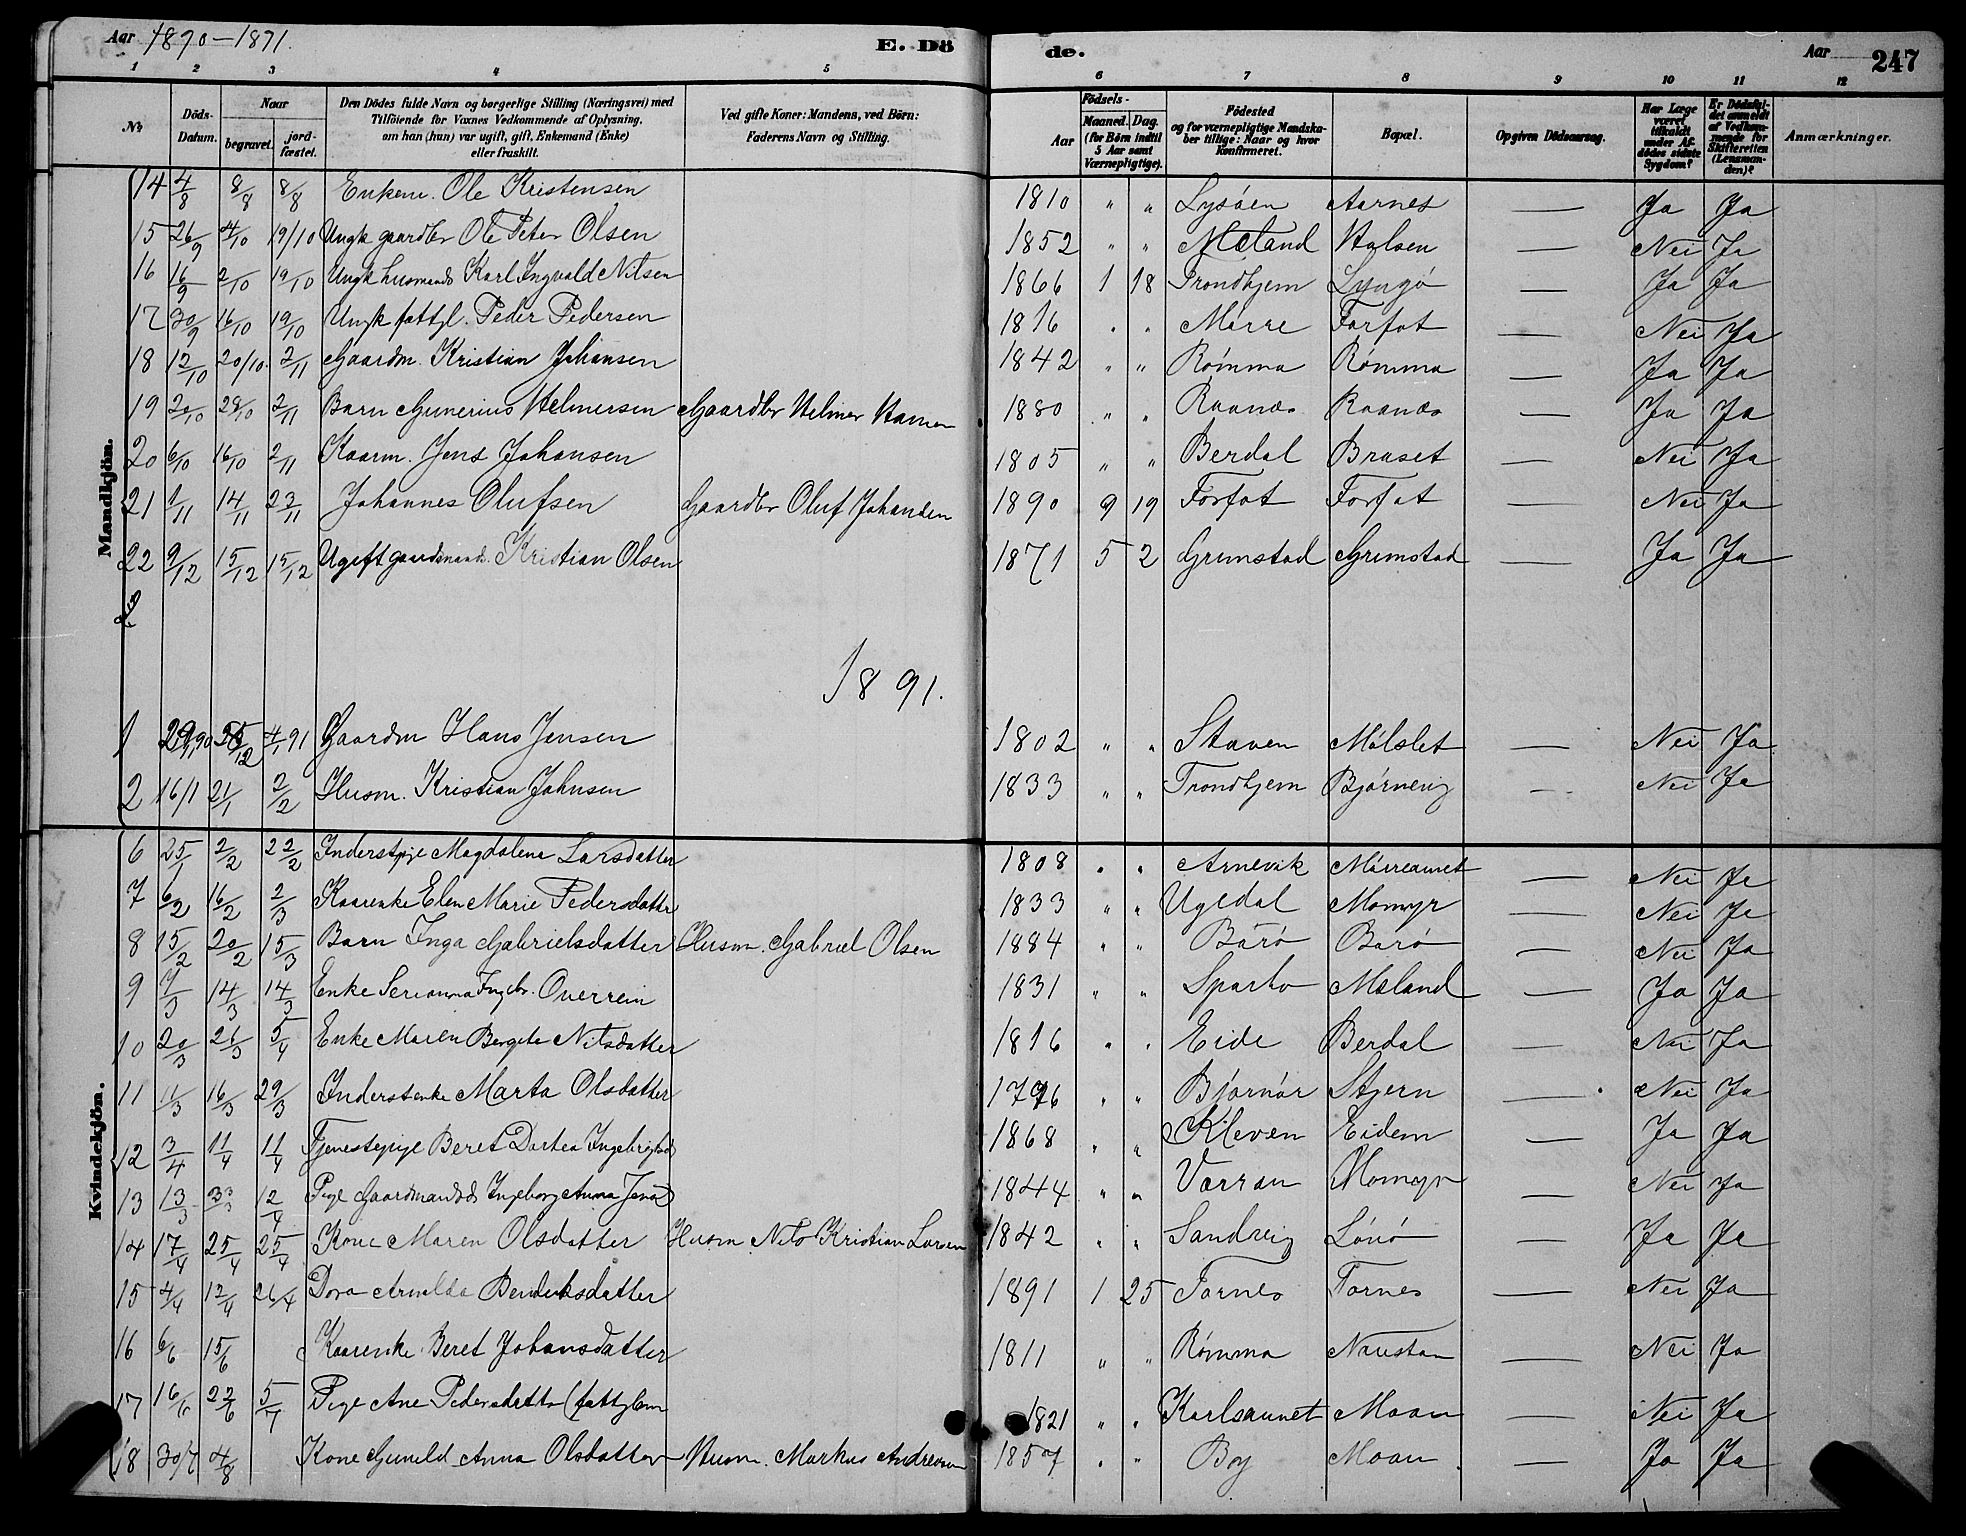 Aar 1890-1891.
E. Dö
de.
Aar
247
1 2 3 4 5
6 7 8 9 10 11 12
No
Döds-
Datum.
Naar
begravet.
jord-
fæstet.
Den Dödes fulde Navn og borgerlige Stilling (Næringsvei) med
Tilföiende for Voxnes Vedkommende af Oplysning,
om han (hun) var ugift, gift, Enkemand (Enke)
eller fraskilt.
Ved gifte Koner: Mandens, ved Börn:
Faderens Navn og Stilling.
Födsels-
Aar
Maaned. Dag.
(for Börn indtil
5 Aar samt
Værnepligtige).
Födested
og for værnepligtige Mandska-
ber tillige: Naar og hvor
Konfirmeret.
Bopæl.
Opgiven Dödsaarsag.
Har Læge
været
tilkaldt
under Af-
dödes sidste
Sygdom?
Er Dödsfal-
det anmeldt
af Vedkom-
mende for
Skifteretten
(Lensman-
den)?
Anmærkninger.
Mandkjön.
14 4/8 8/8 8/8 Enkem. Ole Kristensen 1810 " " Lysöen Aarnes — Ja Ja
15 26/9 4/10 19/10 Ungk gaardbr Ole Peter Olsen 1852 " " Mæland Halsen — Nei Ja
16 16/9 2/10 19/10 Ungk husmands Karl Ingvald Nilsen 1866 1 18 Trondhjem Lyngö — Ja Ja
17 30/9 16/10 19/10 Ungk fattgl. Peder Pedersen 1816 " " Mörre Forfot — Nei Ja
18 12/10 20/10 2/11 Gaardm. Kristian Johansen 1842 " " Römma Römma — Ja Ja
19 20/10 28/10 2/11 Barn Gunerius Helmersen Gaardbr Helmer 1880 " " Raanæs Raanæs — Ja Ja
20 6/10 16/10 2/11 Kaarm. Jens Johansen 1805 " " Berdal Braset — Nei Ja
21 1/11 14/11 23/11 Johannes Olufsen Gaardbr Oluf Johansen 1890 9 19 Forfot Forfot — Nei Ja
22 9/12 15/12 15/12 Ugift gaardmands. Kristian Olsen 1871 5 2 Grimstad Grimstad — Ja Ja
1891.
1 90 4/1 91 Gaardm Hans Jensen 1802 " " Staven Mölslet — Nei Ja
2 16/1 21/1 2/2 Husm. Kristian Johnsen 1833 " " Trondhjem Björnevig — Nei Ja
Kvindekjön.
6 25/1 2/2 22/2 Inderstpige Magdalena Larsdatter 1808 " " Arnevik Mörreaunet — Nei Ja
7 6/2 16/2 2/3 Kaarenke Elen Marie Pedersdatter 1833 " " Ugedal Momyr — Nei Ja
8 15/2 20/2 15/3 Barn Inga Gabrielsdatter Husm. Gabriel Olsen 1884 " " Barö Barö — Nei Ja
9 7/3 14/3 14/3 Enke Serianna Ingebr. Overrein 1831 " " Sparbo Mæland — Ja Ja
10 20/3 26/3 5/4 Enke Maren Bergete Nilsdatter 1816 " " Eide Berdal — Nei Ja
11 11/3 16/3 29/3 Inderstenke Marta Olsdatter 1796 " " Björnör Stjern — Nei Ja
12 3/4 11/4 11/4 Tjenestepige Beret Dortea Ingebrigtsd 1868 " " Kleven Eidem — Ja Ja
13 13/3 12/4 Pige Gaardmandsd Ingeborg Anna Jensd 1844 " " Værran Momyr — Nei Ja
14 17/4 25/4 25/4 Kone Maren Olsdatter Husm Nils Kristian Larsen 1842 " " Sandvig Lönö — Ja Ja
15 4/4 12/4 26/4 Dora Arnilda Bendiksdatter 1891 1 25 Tarnes Tarnes — Nei Ja
16 6/6 15/6 Kaarenke Beret Johansdatter 1811 " " Römma Naustan — Nei Ja
17 16/6 22/6 5/7 Pige Ane Pedersdatter (fattglem 1821 " " Karlsaunet Moan — Nei Ja
18 30/7 4/8 Kone Gunild Anna Olsdatter Husm. Markus Andreasen 1857 " " Boy Moan — Ja Ja